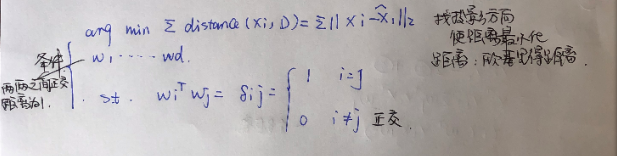 arg min Σ distance (xi, D) = Σ || xi - x̂i ||₂
找投影方向
使距离最小化
距离: 欧基里得距离.
条件
w1 ····· wd.
两两之间正交
距离为1.
st. wiᵀ wj = δij = { 1 i=j
0 i≠j 正交.